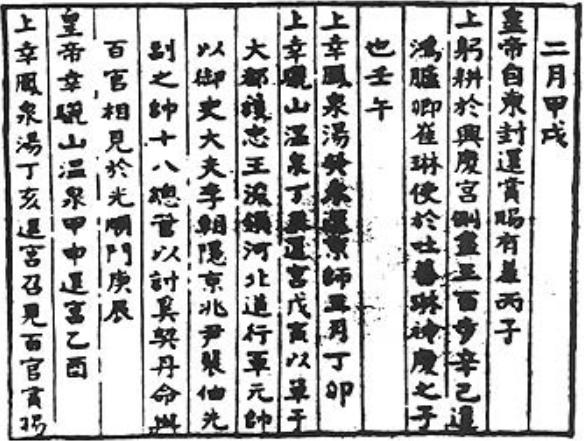 二月甲戌
皇帝自東封還賞賜有差丙子
上躬耕於興慶宮側盡三百步辛巳遣
鴻臚卿崔琳使於吐蕃琳神慶之子
也壬午
上幸鳳泉湯癸未還京師五月丁卯
上幸驪山溫泉丁丑還宮戊寅以單于
大都護忠王浚領河北道行軍元帥
以御史大夫李朝隱京兆尹裴伷先
副之帥十八總管以討奚契丹命與
百官相見於光順門庚辰
皇帝幸驪山溫泉甲申還宮乙酉
上幸鳳泉湯丁亥還宮召見百官賞賜